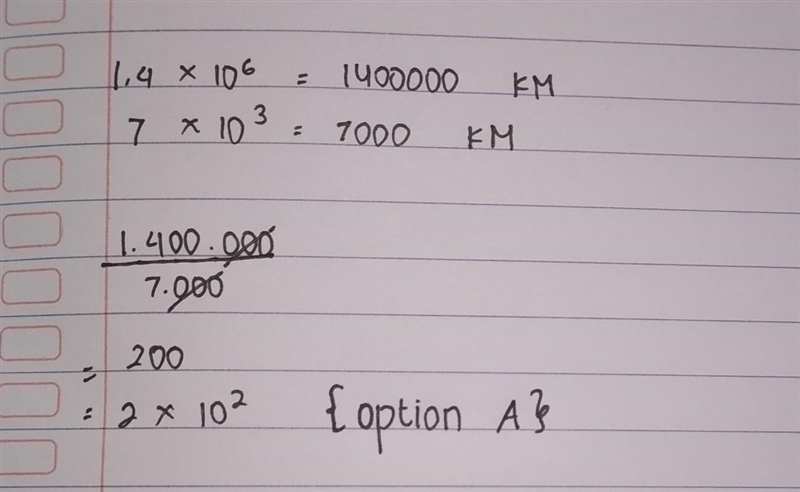 1.4 × 10⁶ = 1400000 KM
7 × 10³ = 7000 KM
1.400.000
7.000
= 200
= 2 × 10² {option A}